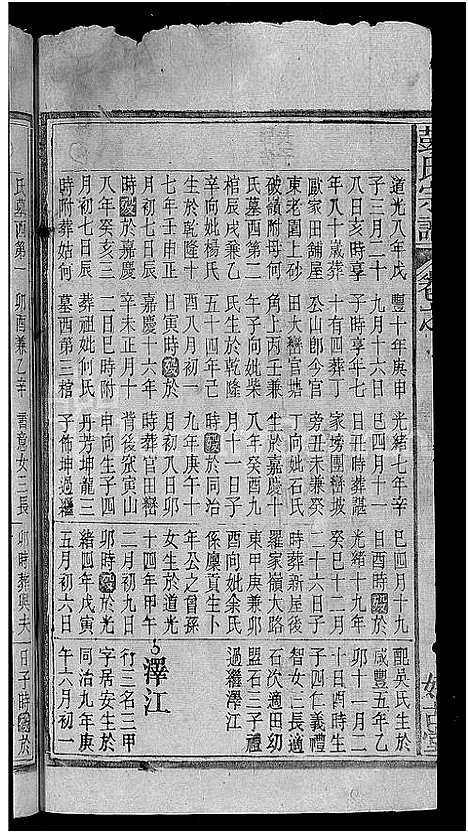 氏宗譜
道光八年戊
子三月二十
八日亥時享
年八十歲葬
歐家田舖屋
東老園上砂
破嶺附母何
氏墓西第二
棺辰戌兼乙
辛向妣楊氏
生於乾隆十
七年壬申正
月初七日辰
時歿於嘉慶
八年癸亥三
月初七日辰
時附葬姑何
豐十年庚申
九月十六日
子時享年七
十有四葬丁
公山郎今官
大巒官塘
角上丙壬兼
午子向妣柴
氏生於乾隆
五十四年己
酉八月初一
日寅時歿於
嘉慶十六年
辛未正月十
二日巳時附
葬祖妣何氏
墓西第三棺
光緒七年辛
巳四月十一
日丑時葬諶
家塝團巒坡
旁丑未兼癸
丁向妣石氏
生於嘉慶十
八年癸酉九
月十一日子
時歿於同治
九年庚午十
月初八日卯
時葬官田巒
背後寅山
申向生子四
丹芳坤龍三
子佈坤過繼
巳四月十九
日酉時歿於
光緒十九年
癸巳十二月
二十六日辰
時葬新屋後
羅家嶺大路
東甲庚兼卯
酉向妣余氏
係廩貢生卜
年公之曾孫
女生於道光
十四年甲午
二月初九日
卯時歿於光
緒四年戊寅
五月初六日
配吳氏生於
咸豐五年乙
卯十一月二
十日酉時生
子四仁義禮
智女二長適
石次適田幼
盟石三子禮
過繼澤江
澤江
行三名三甲
字居安生於
同治九年庚
午六月初一
氏墓西第一
卯酉兼乙辛
書意女三長
卯時葬與夫
日子時歿於